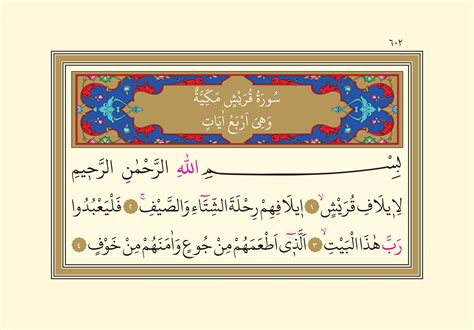 ٦٠٢
سُورَةُ قُرَيْشٍ مَكِّيَّةٌ
وَهِىَ اَرْبَعُ اٰيَاتٍ
بِسْمِ اللّٰهِ الرَّحْمٰنِ الرَّح۪يمِ
لِا۪يلَافِ قُرَيْشٍۙ ﴿١﴾ ا۪يلَافِهِمْ رِحْلَةَ الشِّتَٓاءِ وَالصَّيْفِۚ ﴿٢﴾ فَلْيَعْبُدُوا
رَبَّ هٰذَا الْبَيْتِۙ ﴿٣﴾ اَلَّذ۪ٓى اَطْعَمَهُمْ مِنْ جُوعٍ وَاٰمَنَهُمْ مِنْ خَوْفٍ ﴿٤﴾